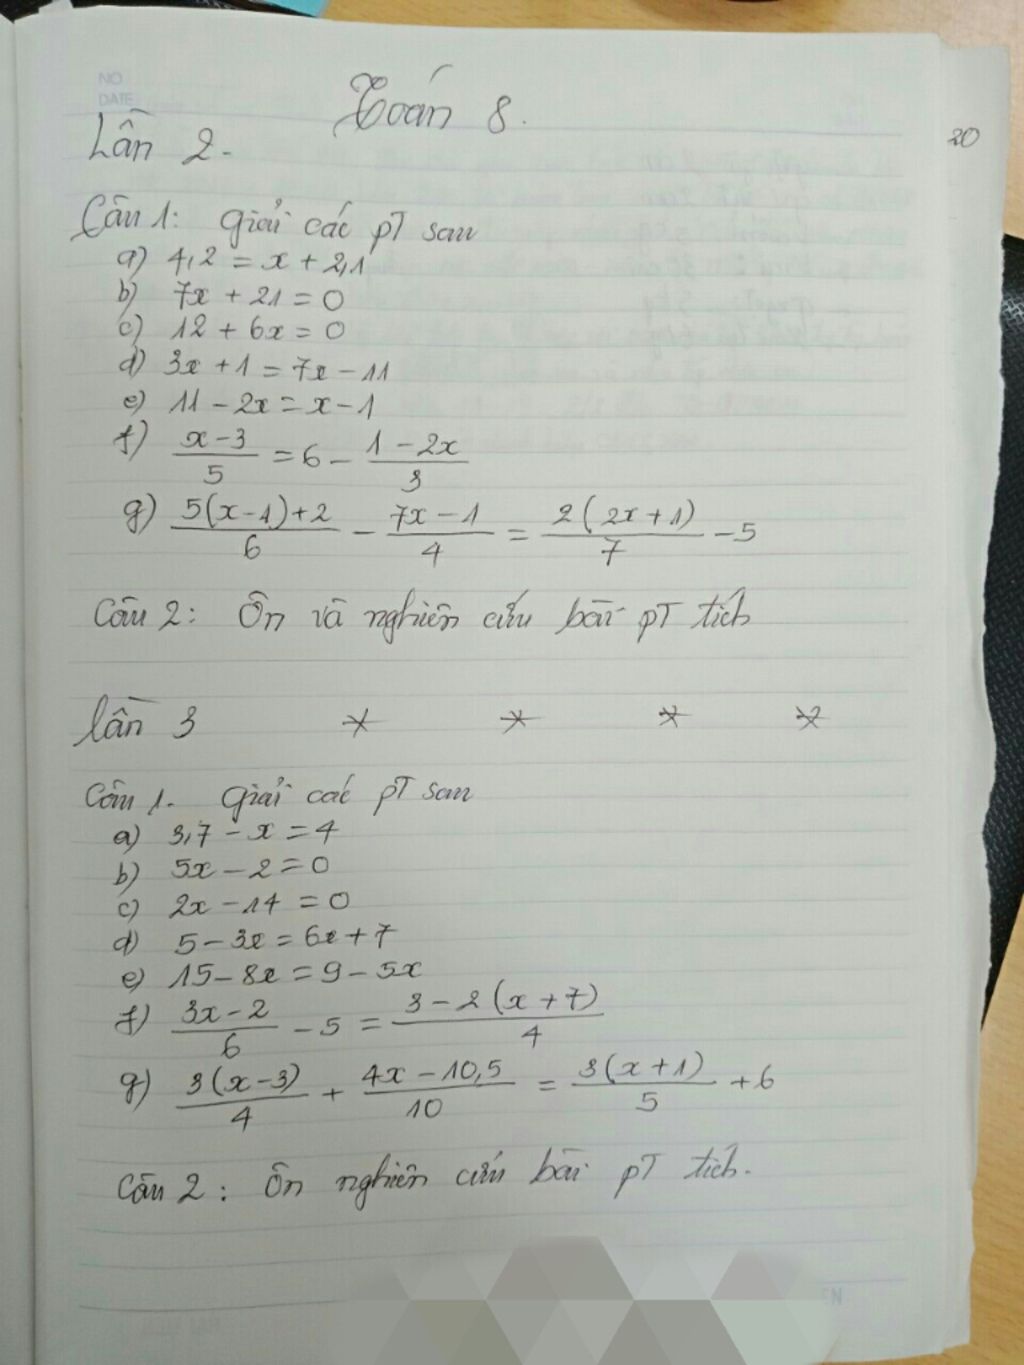 NO
DATE
Toán 8.
20
Lần 2.
Câu 1: Giải các pT sau
a) 4,2 = x + 2,1
b) 7x + 21 = 0
c) 12 + 6x = 0
d) 3x + 1 = 7x - 11
e) 11 - 2x = x - 1
f) (x - 3)/5 = 6 - (1 - 2x)/3
g) (5(x - 1) + 2)/6 - (7x - 1)/4 = (2(2x + 1))/7 - 5
Câu 2: Ôn và nghiên cứu bài pT tích
Lần 3 * * * *
Câu 1. Giải các pT sau
a) 3,7 - x = 4
b) 5x - 2 = 0
c) 2x - 14 = 0
d) 5 - 3x = 6x + 7
e) 15 - 8x = 9 - 5x
f) (3x - 2)/6 - 5 = (3 - 2(x + 7))/4
g) (3(x - 3))/4 + (4x - 10,5)/10 = (3(x + 1))/5 + 6
Câu 2: Ôn nghiên cứu bài pT tích.